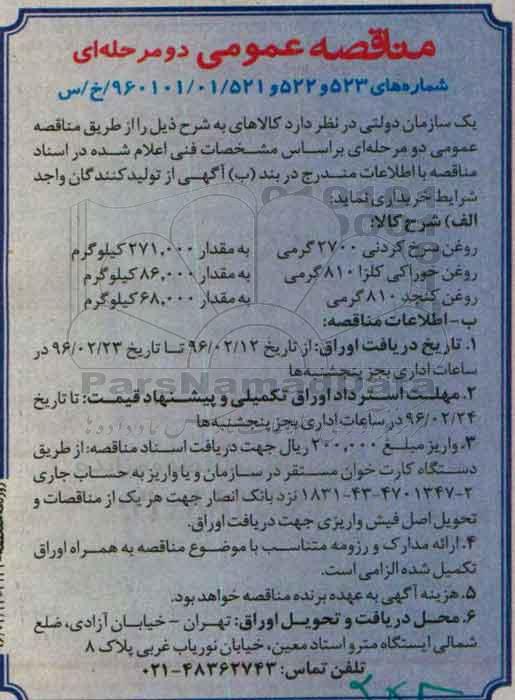 مناقصه عمومی دو مرحله‌ای
شماره‌های ۵۲۳ و ۵۲۲ و ۹۶۰۱۰۱/۰۱/۵۲۱/خ/س
یک سازمان دولتی در نظر دارد کالاهای به شرح ذیل را از طریق مناقصه
عمومی دو مرحله‌ای براساس مشخصات فنی اعلام شده در اسناد
مناقصه با اطلاعات مندرج در بند (ب) آگهی از تولیدکنندگان واجد
شرایط خریداری نماید:
الف) شرح کالا:
روغن سرخ کردنی ۲۷۰۰ گرمی به مقدار ۲۷۱،۰۰۰ کیلوگرم
روغن خوراکی کلزا ۸۱۰ گرمی به مقدار ۸۶،۰۰۰ کیلوگرم
روغن کنجد ۸۱۰ گرمی به مقدار ۶۸،۰۰۰ کیلوگرم
ب- اطلاعات مناقصه:
۱. تاریخ دریافت اوراق: از تاریخ ۹۶/۰۲/۱۲ تا تاریخ ۹۶/۰۲/۲۳ در
ساعات اداری بجز پنجشنبه‌ها
ParsNamadData
۲. مهلت استرداد اوراق تکمیلی و پیشنهاد قیمت: تا تاریخ
۹۶/۰۲/۲۴ در ساعات اداری بجز پنجشنبه‌ها
۳. واریز مبلغ ۲۰۰،۰۰۰ ریال جهت دریافت اسناد مناقصه: از طریق
دستگاه کارت خوان مستقر در سازمان و یا واریز به حساب جاری
۱۸۳۱-۴۳-۴۷۰۱۳۴۷-۲ نزد بانک انصار جهت هر یک از مناقصات و
تحویل اصل فیش واریزی جهت دریافت اوراق.
۴. ارائه مدارک و رزومه متناسب با موضوع مناقصه به همراه اوراق
تکمیل شده الزامی است.
۵. هزینه آگهی به عهده برنده مناقصه خواهد بود.
۶. محل دریافت و تحویل اوراق: تهران - خیابان آزادی، ضلع
شمالی ایستگاه مترو استاد معین، خیابان نوریاب غربی پلاک ۸
تلفن تماس: ۴۸۳۶۲۷۴۳-۰۲۱